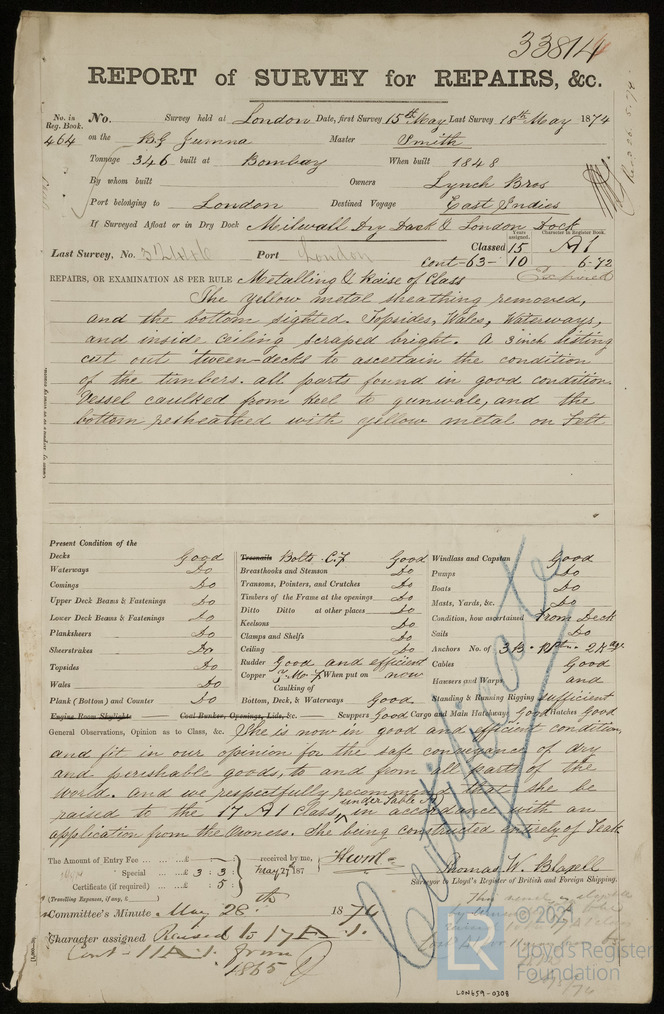 33814
REPORT of SURVEY for REPAIRS, &c.
No. in Reg. Book. No. Survey held at London Date, first Survey 15th May Last Survey 18th May 1874
464 on the Bg Jumna Master Smith
Tonnage 346 built at Bombay When built 1848
By whom built Owners Lynch Bros
Port belonging to London Destined Voyage East Indies
If Surveyed Afloat or in Dry Dock Milwall Dry Dock & London Dock
Years assigned. Character in Register Book.
Last Survey, No. Port London Classed 15 A1
cont-63- 10 6-72
REPAIRS, OR EXAMINATION AS PER RULE Metalling & Raise of Class
The yellow metal sheathing removed,
and the bottom sighted. Topsides, Wales, Waterways,
and inside Ceiling scraped bright. A 3 inch listing
cut out 'tween-decks to ascertain the condition
of the timbers. all parts found in good condition.
Vessel caulked from keel to gunwale, and the
bottom resheathed with yellow metal on Felt
Present Condition of the
Decks Good
Waterways Do
Comings Do
Upper Deck Beams & Fastenings Do
Lower Deck Beams & Fastenings Do
Planksheers Do
Sheerstrakes Do
Topsides Do
Wales Do
Plank (Bottom) and Counter Do
Engine Room Skylights Coal Bunker, Openings, Lids, &c.
Treenails Bolts C.F Good
Breasthooks and Stemson Do
Transoms, Pointers, and Crutches Do
Timbers of the Frame at the openings Do
Ditto Ditto at other places Do
Keelsons Do
Clamps and Shelfs Do
Ceiling Do
Rudder Good and efficient
Copper When put on now
Caulking of
Bottom, Deck, & Waterways Good
Scuppers Good Cargo and Main Hatchway Good Hatches Good
Windlass and Capstan Good
Pumps Do
Boats Do
Masts, Yards, &c. Do
Condition, how ascertained From Deck
Sails Do
Anchors No. of 3B.
Cables Good
Hawsers and Warps and
Standing & Running Rigging sufficient
General Observations, Opinion as to Class, &c. She is now in good and efficient condition,
and fit in our opinion for the safe conveyance of dry
and perishable goods, to and from all parts of the
world. and we respectfully recommend that she be
raised to the 17 A1 Class, under Table A in accordance with an
application from the Owners. She being constructed entirely of Teak
The Amount of Entry Fee ... £ : : received by me,
Special ... £ 3 : 3 : May 27th 187
Certificate (if required) ... £ : 5 :
(Travelling Expenses, if any, £ )
Thomas W. Blagell
Surveyor to Lloyd's Register of British and Foreign Shipping.
Committee's Minute May 28th 1874
Character assigned Raised to 17 A.1.
Cont- 11 A.1. from
1865
Certificate
© 2021
LR
Lloyd's Register
Foundation
LON659-0308